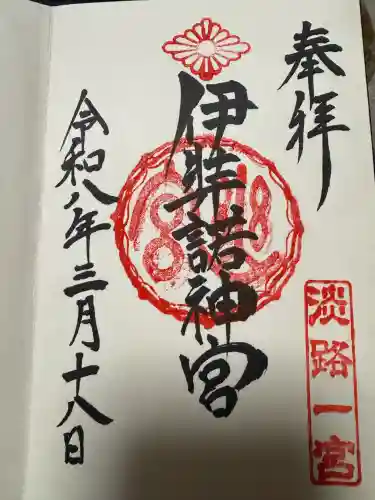 奉拝
淡路一宮
伊弉諾神宮
令和八年三月十八日